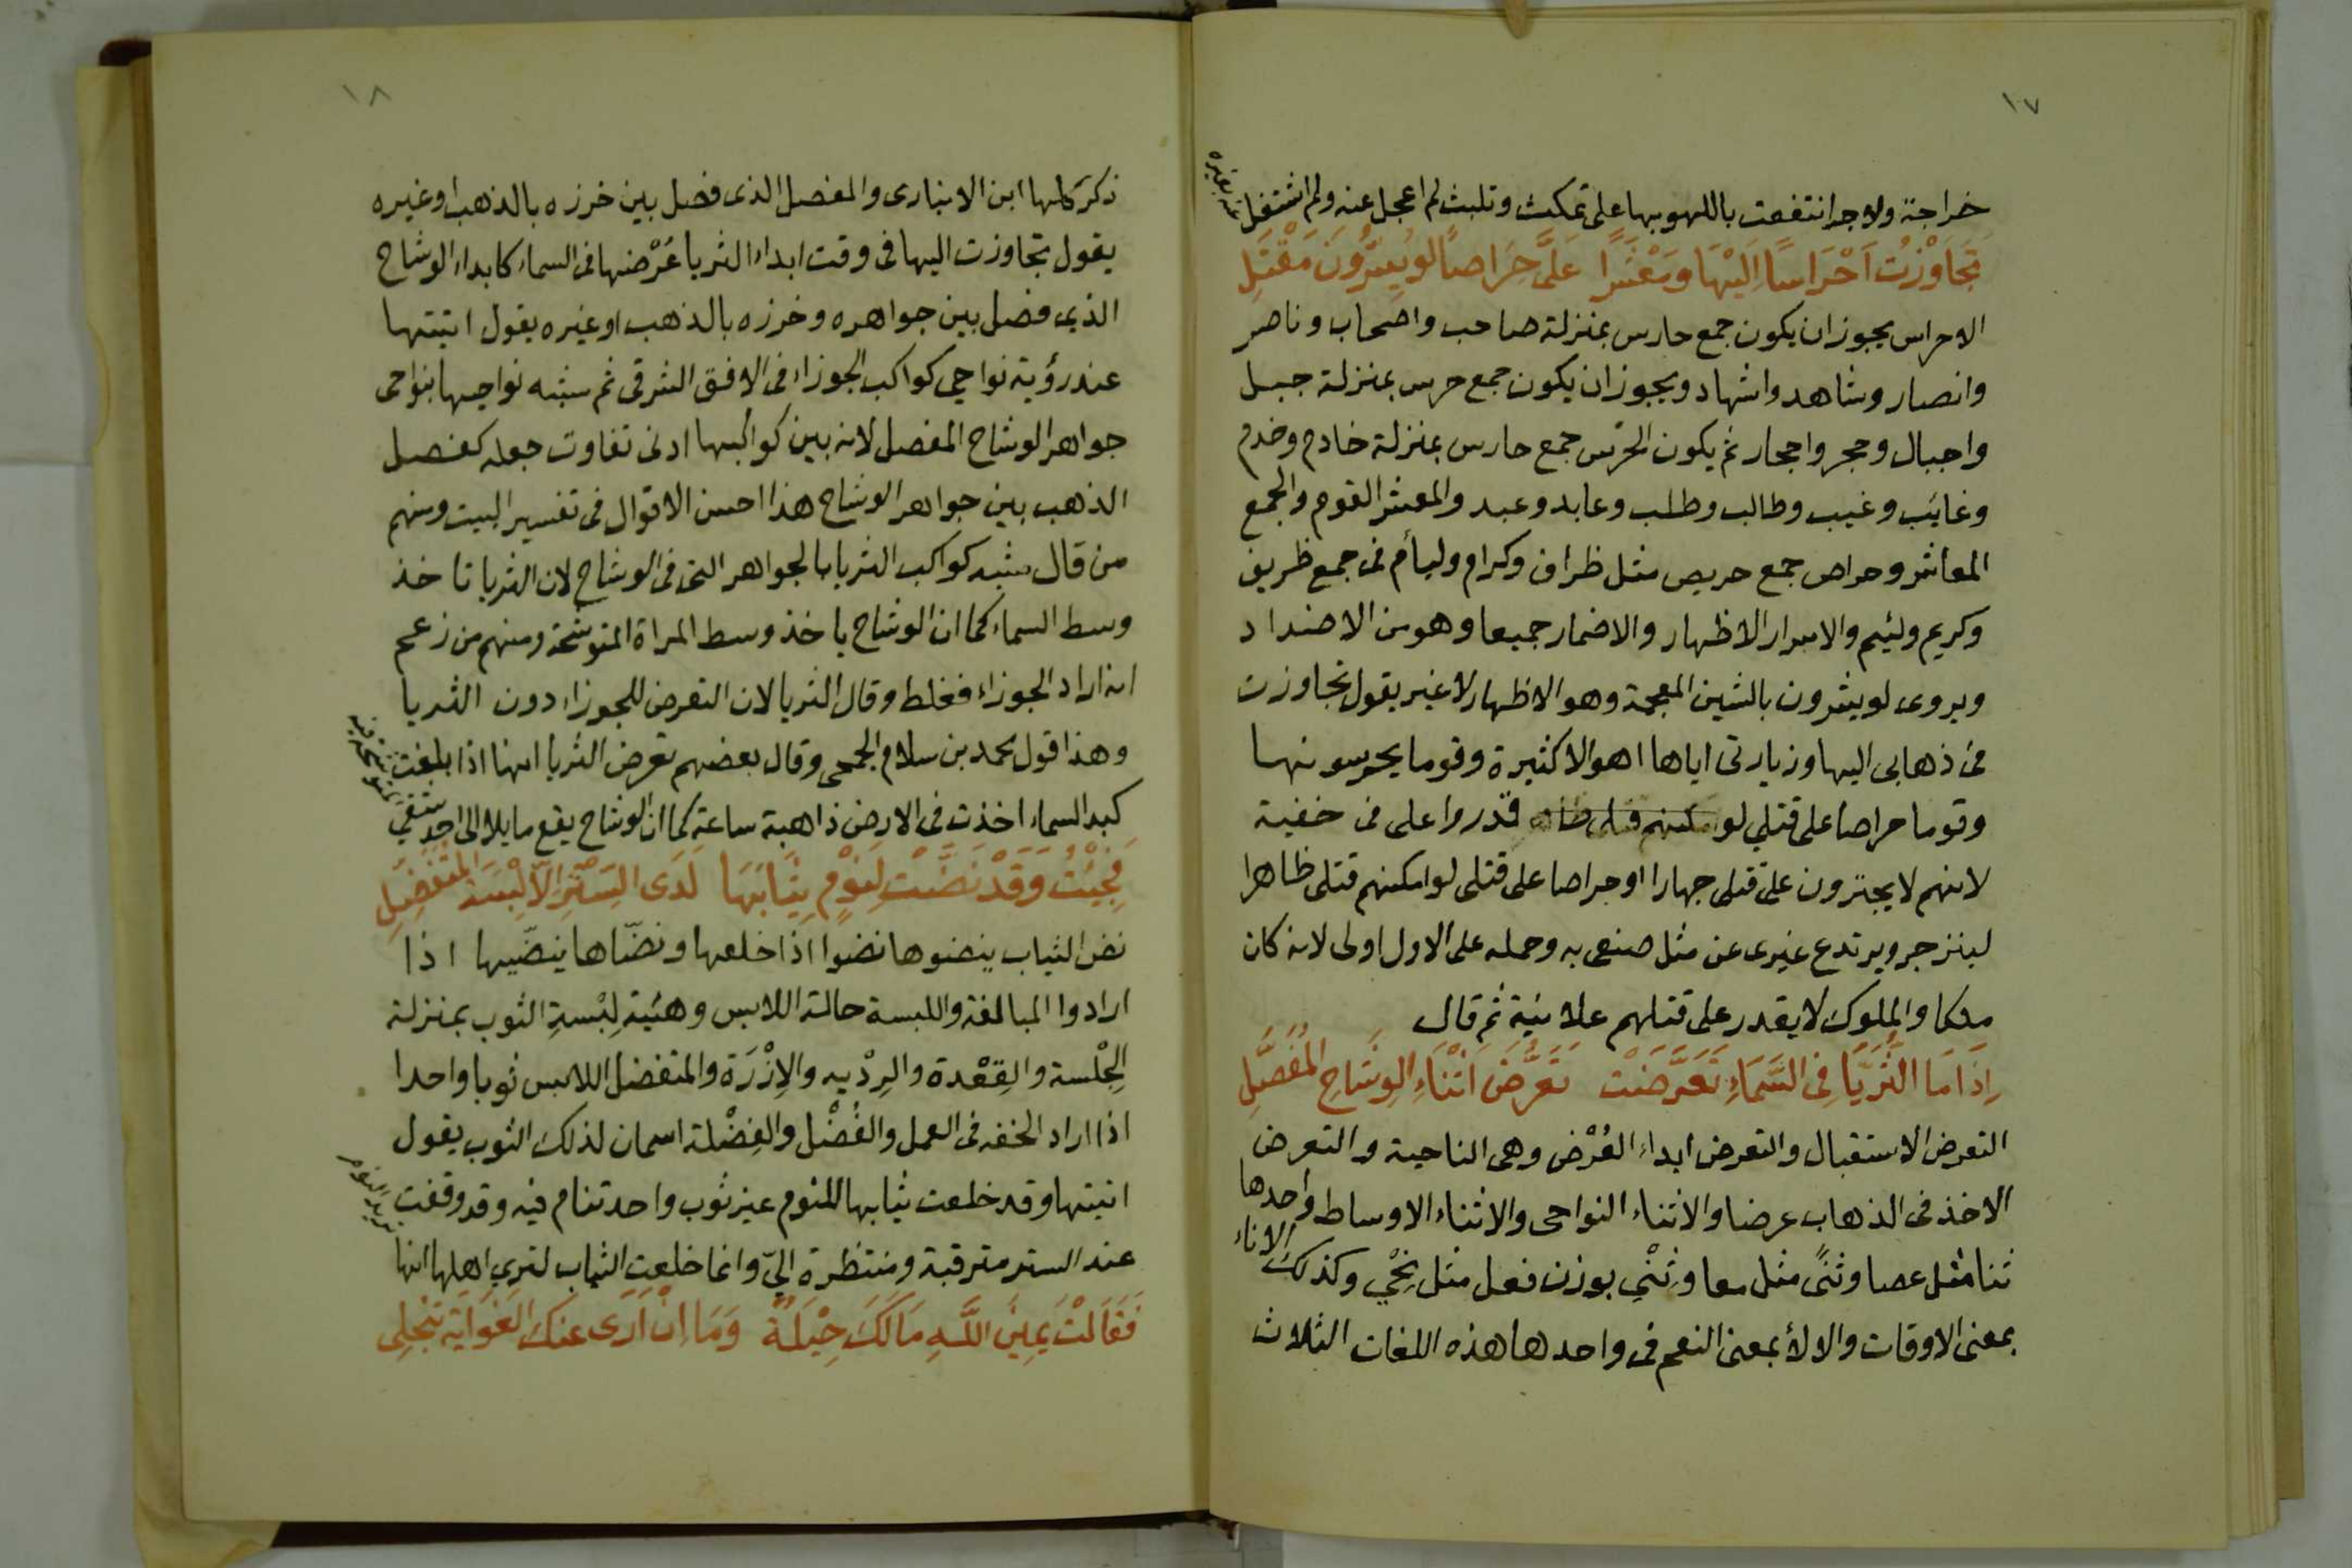 ١٧
خراجة ولاجة انتفعت باللهو بها على تمكث وتلبث لم اعجل عنه ولم اشتغل
عنه بغيره
تَجَاوَزْتُ اَحْرَاسًا اِلَيْهَا وَمَعْشَرًا عَلَيَّ حِرَاصًا لَوْ يُسِرُّونَ مَقْتَلِي
الاحراس يجوز ان يكون جمع حارس بمنزلة صاحب واصحاب وناصر
وانصار وشاهد واشهاد ويجوز ان يكون جمع حرس بمنزلة جبل
واجبال وحجر واحجار ثم يكون الحرس جمع حارس بمنزلة خادم وخدم
وغايب وغيب وطالب وطلب وعابد وعبد والمعشر القوم والجمع
المعاشر وحراص جمع حريص مثل ظراف وكرام وليأم فى جمع ظريف
وكريم ولئيم والاسرار الاظهار والاضمار جميعا وهو من الاضداد
ويروى لو يشرون بالشين المعجمة وهو الاظهار لا غير يقول تجاوزت
فى ذهابى اليها وزيارتى اياها اهوالا كثيرة وقوما يحرسونها
وقوما حراصا على قتلي لو قدروا على فى خفية
لانهم لا يجترون على قتلى جهارا او حراصا على قتلى لو امكنهم قتلى ظاهرا
لينزجر ويرتدع غيرى عن مثل صنعى به وحمله على الاول اولى لانه كان
ملكا والملوك لا يقدر على قتلهم علانية ثم قال
اِذَا مَا الثُّرَيَّا فِى السَّمَاءِ تَعَرَّضَتْ تَعَرُّضَ اَثْنَاءِ الْوِشَاحِ الْمُفَصَّلِ
التعرض الاستقبال والتعرض ابداء العُرْض وهى الناحية والتعرض
الاخذ فى الذهاب عرضا والاثناء النواحى والاثناء الاوساط واحدها
ثنا مثل عصا وثنًى مثل معا وثِنْي بوزن فعل مثل نِحْي وكذلك الاناء
بمعنى الاوقات والالأ بمعنى النعم فى واحدها هذه اللغات الثلاث
١٨
ذكر كلها ابن الانبارى والمفصل الذى فصل بين خرزه بالذهب او غيره
يقول تجاوزت اليها فى وقت ابداء الثريا عُرْضها فى السماء كابداء الوشاح
الذى فصل بين جواهره وخرزه بالذهب او غيره يقول اتيتها
عند رؤية نواحي كواكب الجوزاء فى الافق الشرقى ثم شبه نواحيها بنواحى
جواهر الوشاح المفصل لانه بين كواكبها ادنى تفاوت جعله كفصل
الذهب بين جواهر الوشاح هذا احسن الاقوال فى تفسير البيت ومنهم
من قال شبه كواكب الثريا بالجواهر التى فى الوشاح لان الثريا تاخذ
وسط السماء كما ان الوشاح ياخذ وسط المراة المتوشحة ومنهم من زعم
انه اراد الجوزاء فغلط وقال الثريا لان التعرض للجوزاء دون الثريا
وهذا قول محمد بن سلام الجمحى وقال بعضهم تعرض الثريا انها اذا بلغت
كبد السماء اخذت فى الارض ذاهبة ساعة كما ان الوشاح يقع مايلا الى احد شقي
المتوشحة به
فَجِئْتُ وَقَدْ نَضَّتْ لِنَوْمٍ ثِيَابَهَا لَدَى السِّتْرِ اِلَّا لِبْسَةَ الْمُتَفَضِّلِ
نض الثياب ينضوها نضوا اذا خلعها ونضّاها ينضّيها اذا
ارادوا المبالغة واللبسة حالة اللابس وهيئة لِبْسةِ الثوب بمنزلة
الجِلْسة والقِعْدة والرِدْيه والاِزْرَة والمتفضل اللابس ثوبا واحدا
اذا اراد الخفه فى العمل والفُضْل والفِضْلة اسمان لذلك الثوب يقول
اتيتها وقد خلعت ثيابها للنوم غير ثوب واحد تنام فيه وقد وقفت
عند الستر مترقبة ومنتظرة اليّ وانما خلعت الثياب لتري اهلها انها
تريد النوم
فَقَالَتْ يَمِينَ اللَّهِ مَا لَكَ حِيْلَةٌ وَمَا اِنْ اَرَى عَنْكَ الغَوَايَةَ تَنْجَلِى